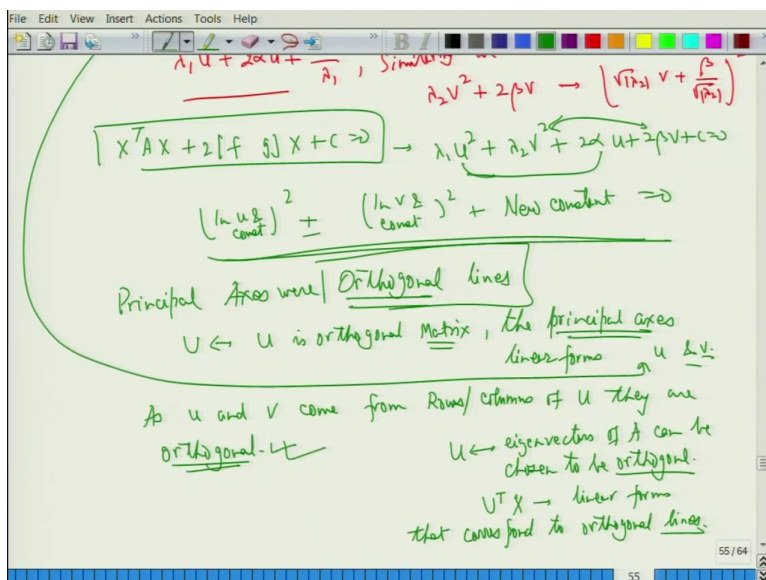 File Edit View Insert Actions Tools Help
λ₁u + 2αu + — λ₁ ,
λ₂v² + 2βv → (√|λ₂| v + β/√|λ₂|)²
X^T A X + 2[f g] X + C = 0 → λ₁u² + λ₂v² + 2αu + 2βv + c = 0
(In u & const)² ± (In v & const)² + New constant = 0
Principal Axes were Orthogonal lines
U ← U is orthogonal Matrix, the principal axes
linear forms u & v.
As u and v come from Rows/columns of U they are
orthogonal.
U ↔ eigenvectors of A can be
chosen to be orthogonal.
U^T X → linear forms
that correspond to orthogonal lines.
55/64
55